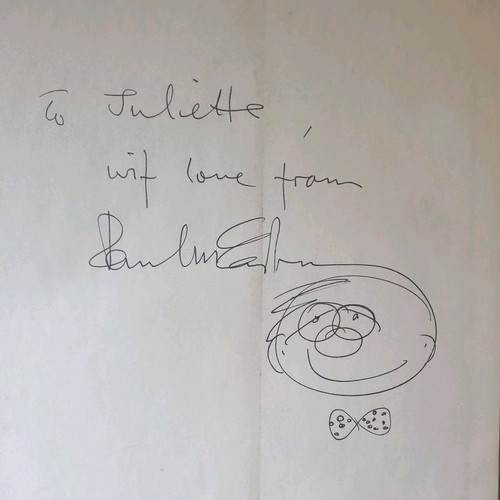 To Juliette,
wif love from
Paul McEachern